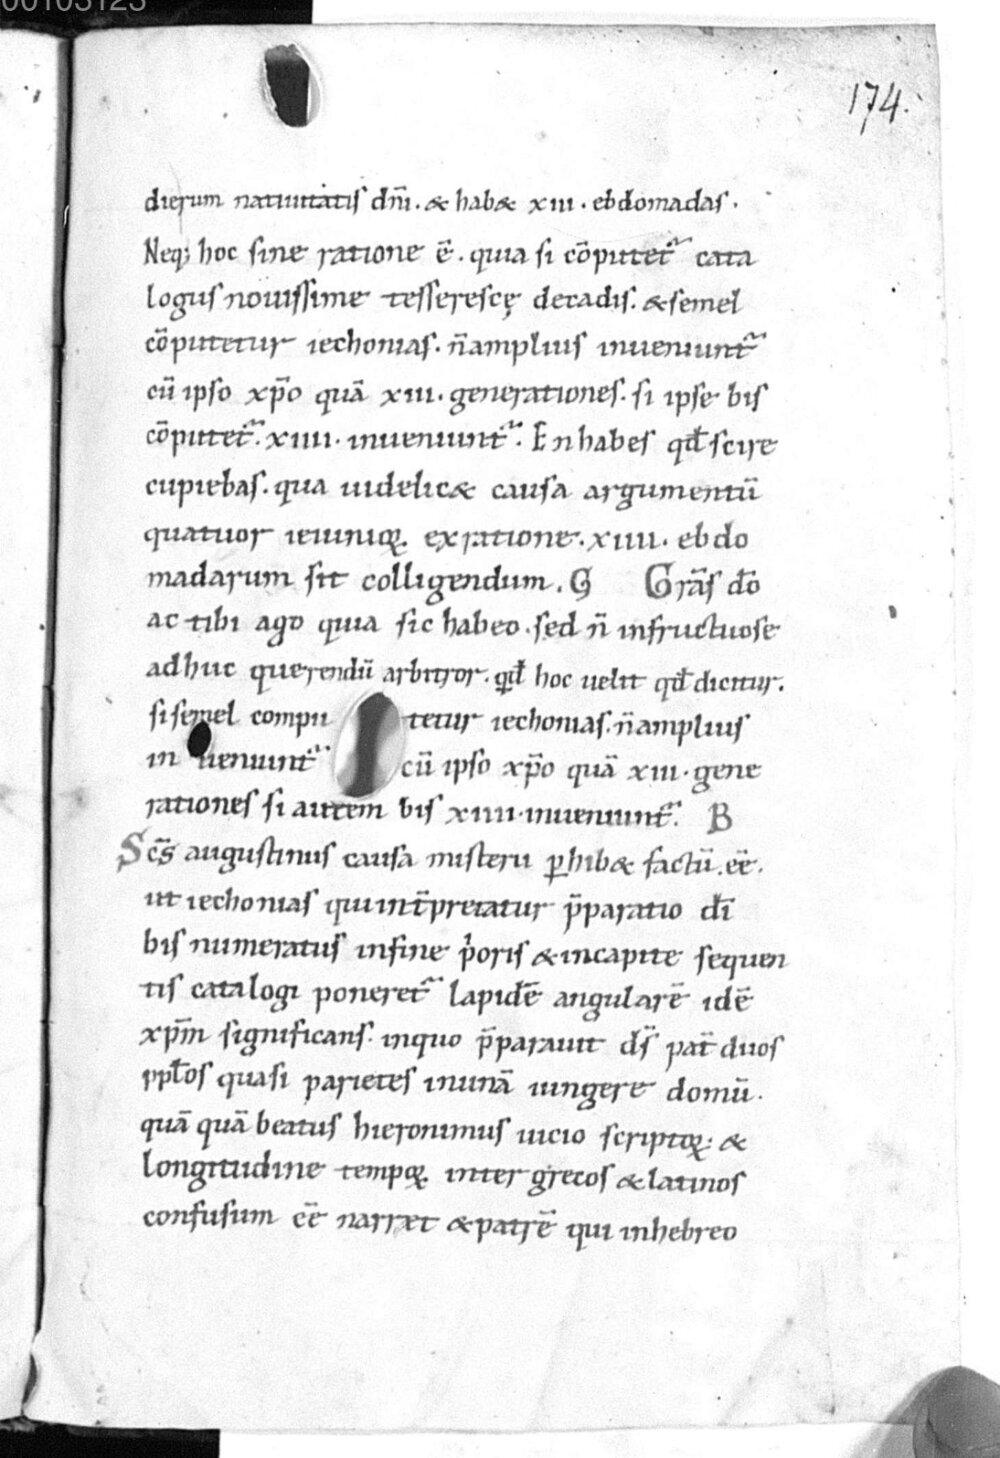 00103123
174.
dierum natiuitatis dnī. & hab& xiii. ebdomadas.
Neq; hoc sine ratione ē. quia si cōputet᷑ cata
logus nouissime tesserescę decadis. & semel
cōputetur iechonias. n̄ amplius inueniunt᷑
cū ipso xp̄o quā xiii. generationes. si ipse bis
cōputet᷑. xiiii. inueniunt᷑. En habes qđ scire
cupiebas. qua uidelic& causa argumentū
quatuor ieiunioꝝ. ex ratione. xiiii. ebdo
madarum sit colligendum. G Grās dō
ac tibi ago quia sic habeo. sed n̄ infructuose
adhuc querendū arbitror. qđ hoc uelit qđ dicitur.
si semel compu tetur iechonias. n̄ amplius
in ueniunt᷑ cū ipso xp̄o quā xiii. gene
rationes si autem bis xiiii. inueniunt᷑. B
Scs̄ augustinus causa misterii ꝑhib& factū. eē.
ut iechonias qui int̄pretatur p̄paratio dī
bis numeratus in fine p̓oris & in capite sequen
tis catalogi poneret᷑ lapidē angularē idē
xp̄m significans. in quo p̄parauit ds̄ pat̄ duos
pplōs quasi parietes in unā iungere domū.
quā quā beatus hieronimus uicio scriptoꝝ: &
longitudine tempoꝝ inter grecos & latinos
confusum eē narret & patrē qui in hebreo